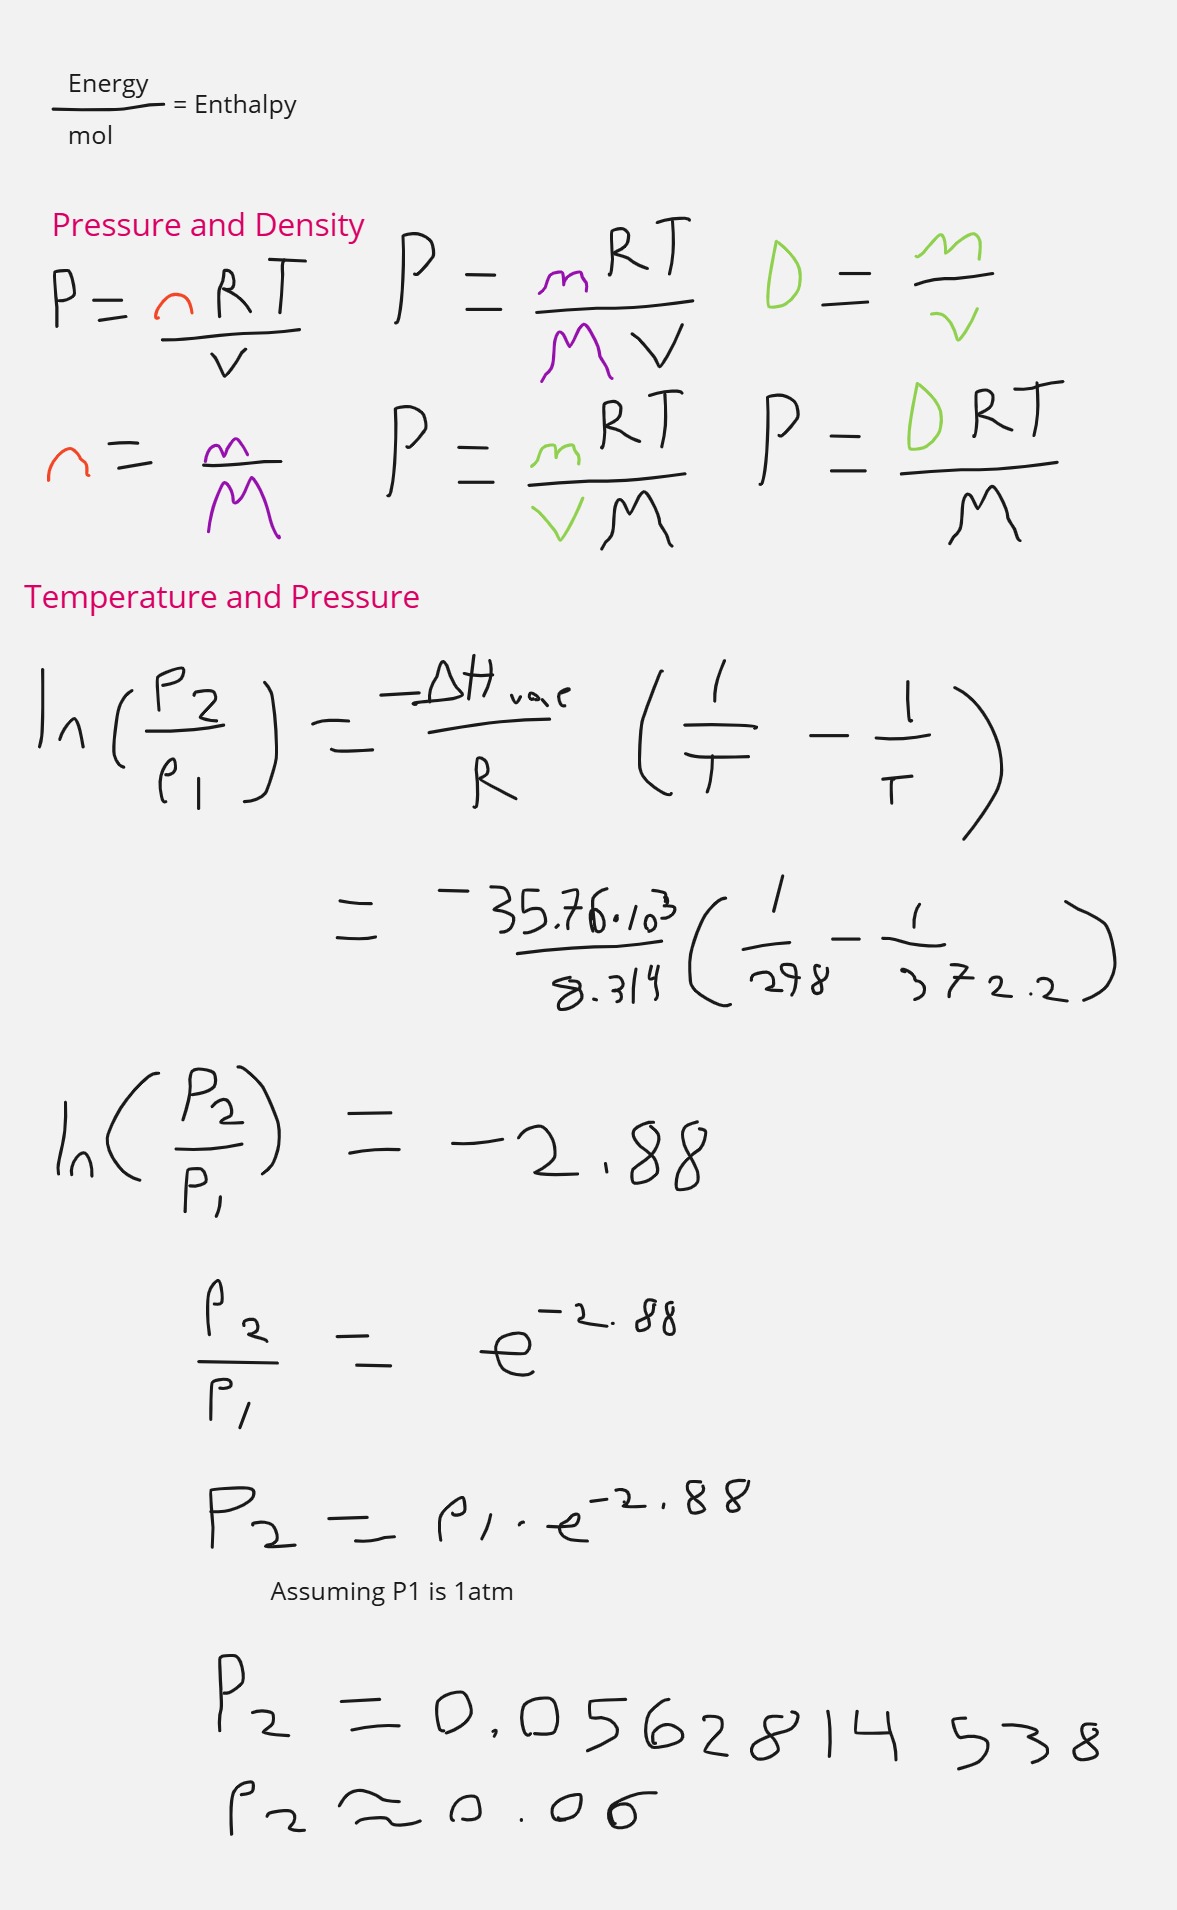 Energy / mol = Enthalpy
Pressure and Density
P = nRT / V
P = mRT / MV
D = m / V
n = m / M
P = mRT / VM
P = DRT / M
Temperature and Pressure
ln(P2 / P1) = -ΔHvap / R (1 / T - 1 / T)
= -35.76·10³ / 8.314 (1 / 298 - 1 / 372.2)
ln(P2 / P1) = -2.88
P2 / P1 = e^-2.88
P2 = P1 · e^-2.88
Assuming P1 is 1atm
P2 = 0.0562814538
P2 ≈ 0.06